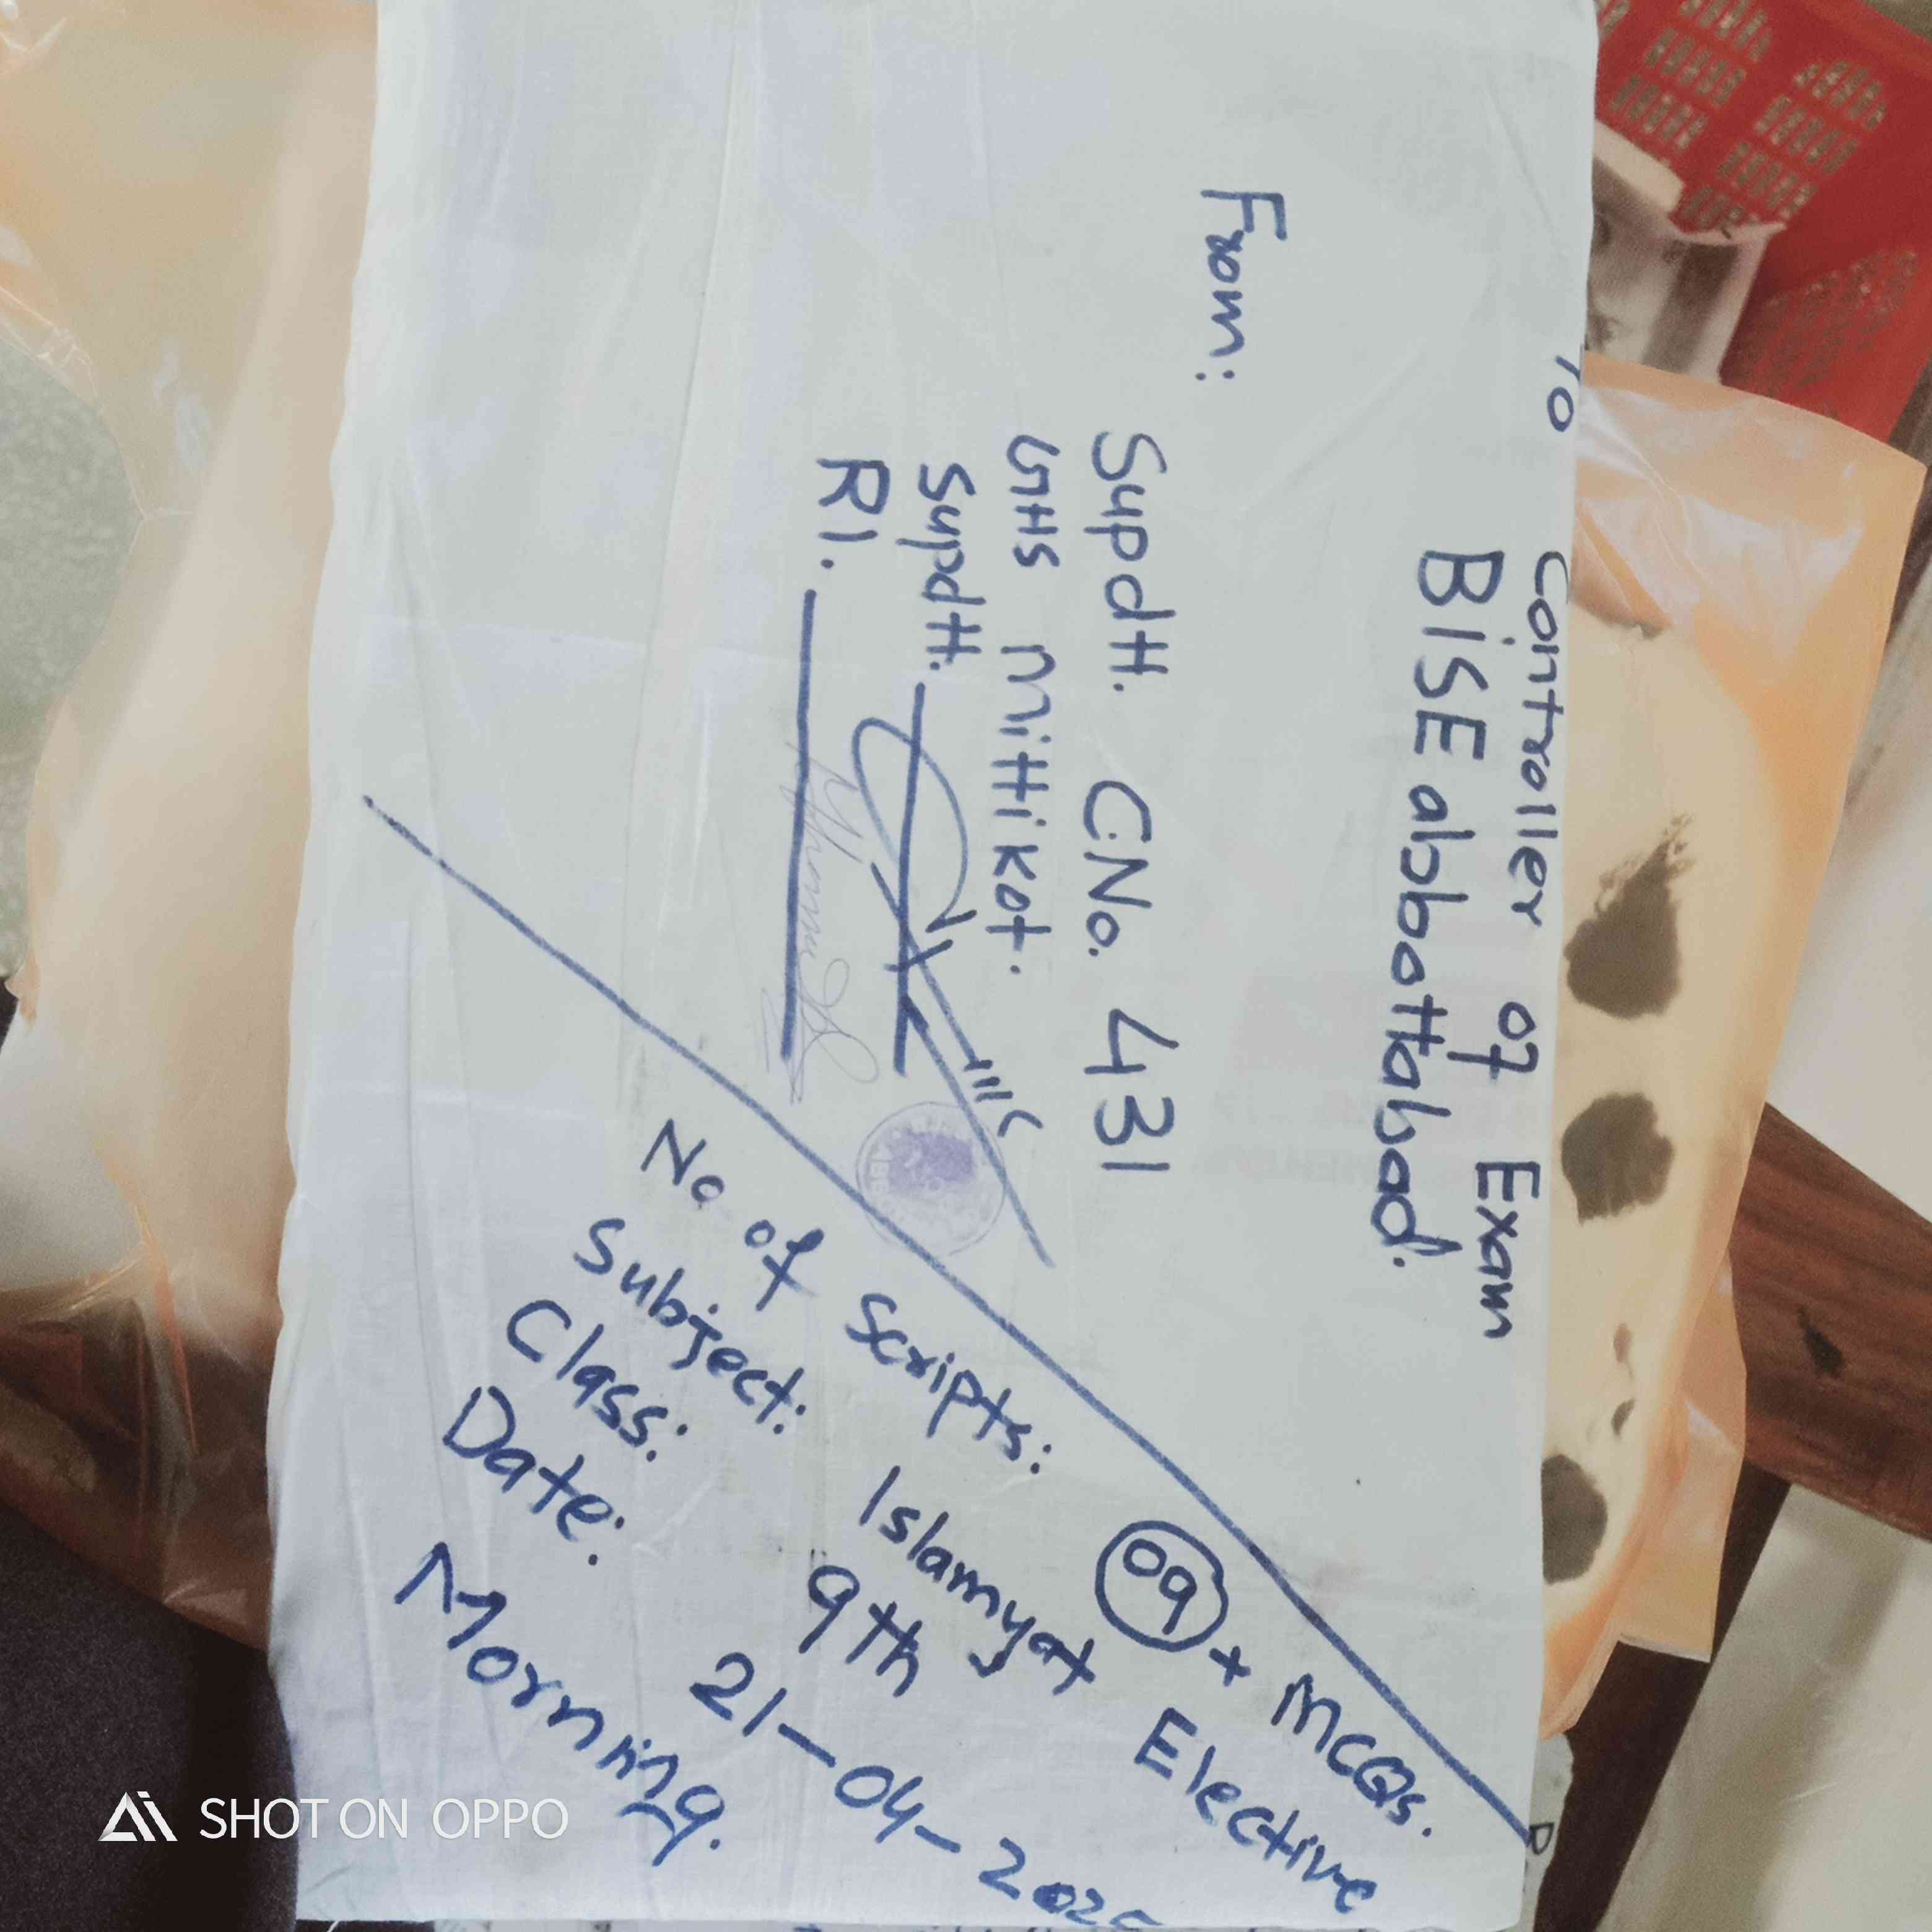 To
Controller of Exam
BISE abbottabad.
From:
Supdtt. C.No. 431
GHS Mitti Kot.
Supdtt.
RI.
No of Scripts: 09 + MCQs.
Subject: Islamyat Elective
Class: 9th
Date: 21-04-2025
Morning.
SHOT ON OPPO